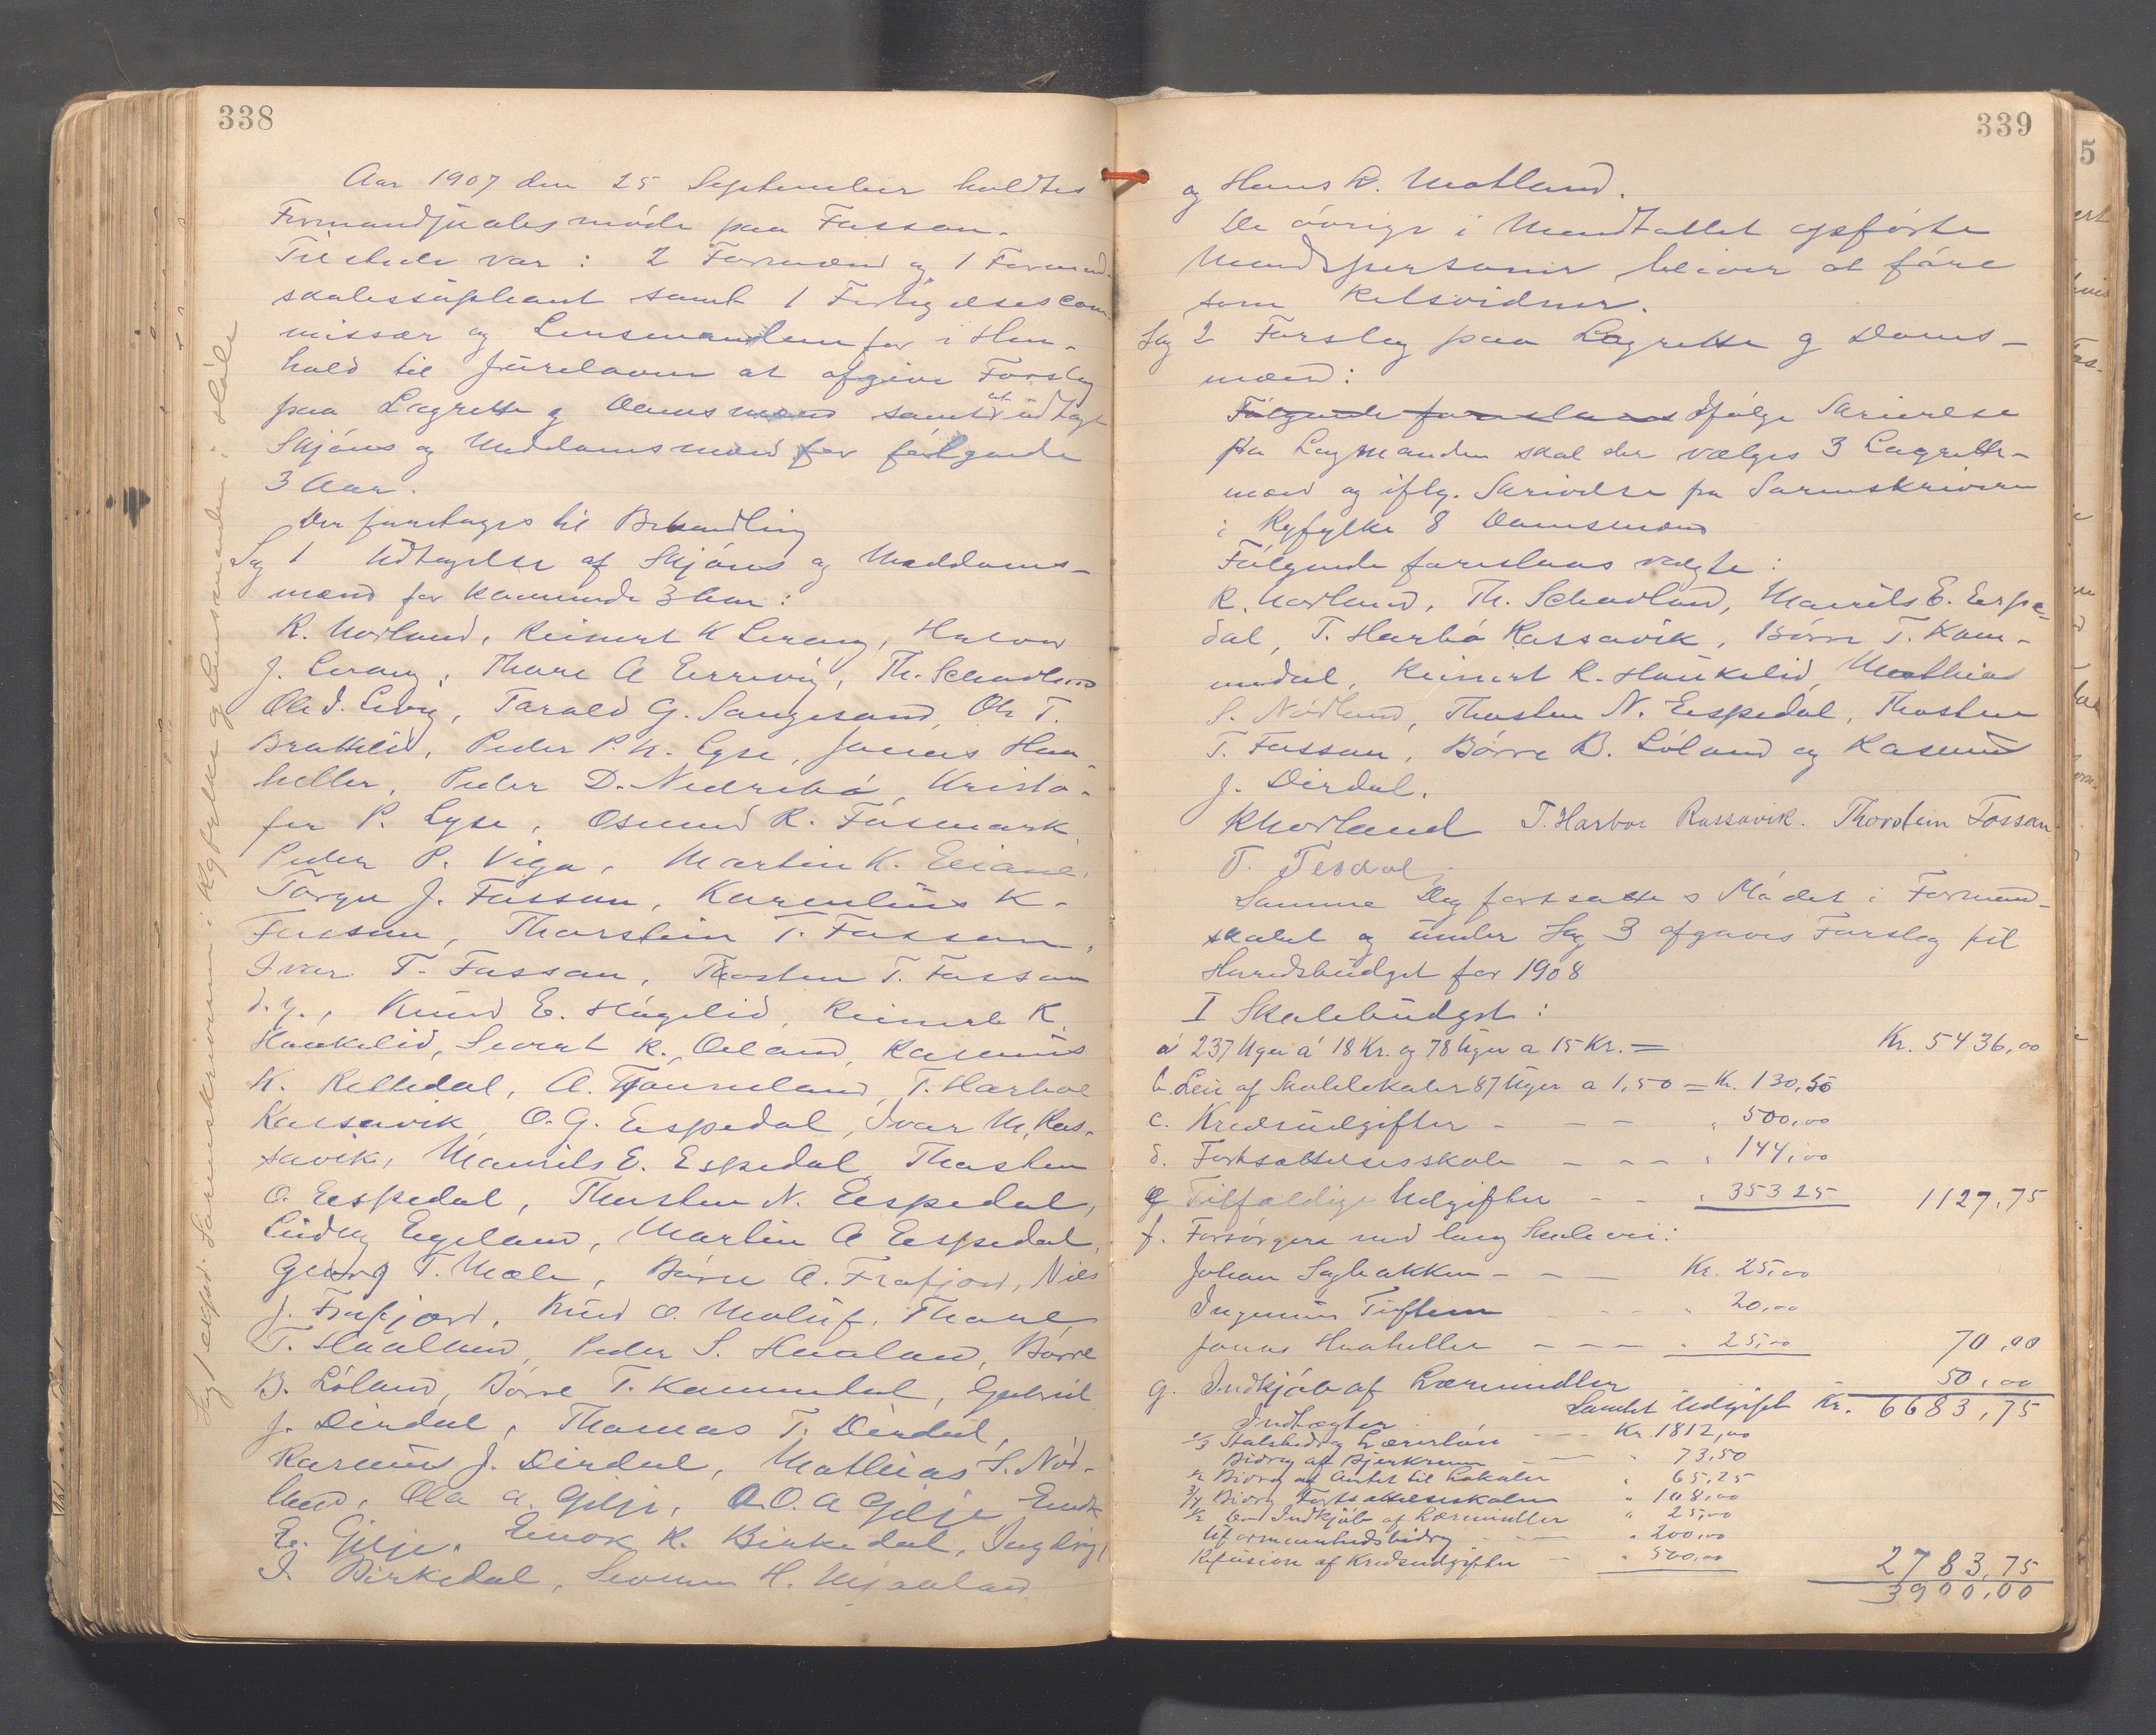 338
Aar 1907 den 25 September holdtes
Formandskabsmöde paa Fossan.
Tilstede var: 2 Formænd og 1 Formand-
skabssupleant samt 1 Forligelsescom
missær og Lensmanden for i Hen-
hold til Jurelovene at afgive Forslag
paa Lagrette og Domsmænd samt at udtage
Skjöns og Meddomsmænd for fölgende
3 Aar.
Der foretoges til Behandling
Sag 1 Udtagelse af Skjöns og Meddoms-
mænd for kommende 3 Aar:
R. Norland, Reinert K Lerang, Halvor
J. Lerang, Thore A Eirevig, Th. Schadland
Ole I. Levig, Tarald G. Sangesand, Ole T.
Brattelid, Peder P. N. Lyse, Jonas Haa-
heller, Peder D. Nedrebö, Kristo-
fer P. Lyse, Osmund R. Fosmark
Peder P. Viga, Martin K. Eiane,
Torger J. Fossan, Karenlius K.
Fossan, Thorstein T. Fossan,
Ivar T. Fossan, Thosten T. Fossan
d.y., Knud E. Högelid, Reinert R.
Haukelid, Sivert R. Oeland, Rasmus
K. Rettedal, A. Tjönneland, T. Harboe
Rossavik, O. G. Espedal, Ivar M. Ros-
savik, Maurits E. Espedal, Thosten
O. Eespedal, Thosten N. Eespedal,
Ludvig Egeland, Martin A Eespedal,
Georg T. Mæle, Börre A. Frafjord, Nils
J. Frafjord, Knud O. Moluf, Thore
T. Haaland, Peder S. Haaland, Börre
B. Löland, Börre T. Kommedal, Gabriel
J. Dirdal, Thomas T. Dirdal,
Rasmus J. Dirdal, Mathias S. Nöd-
land, Ola A. Gilje, O. A Gilje Enok
E. Gilje, Enok R. Birkedal, Ingbrigt
I. Birkedal, Severin H. Mjaaland
Sag 1 ekspd. Sorenskriveren i Ryfylke og Lensmanden i Höle
339
og Hans R. Motland.
De övrige i Mandtallet opförte
Mandspersoner bliver at före
som Retsvidner.
Sag 2 Forslag paa Lagrette og Doms-
mænd:
Fölgende foreslaaes Ifölge Skrivelse
fra Lagmanden skal der vælges 3 Lagrette-
mænd og iflg. Skrivelse fra Sorenskriveren
i Ryfylke 8 Domsmænd
Fölgende foreslaaes valgte:
R. Norland, Th. Schadland, Maurits E. Espe-
dal, T. Harbö Rossavik, Börre T. Kom-
medal, Reinert R. Haukelid, Mathias
S. Nödland, Thosten N. Eespedal, Thosten
T. Fossan, Börre B. Löland og Rasmus
J. Dirdal.
RNorland T. Harboe Rossavik. Thorstein Fossan.
T. Tesdal.
Samme Dag fortsattes Mödet i Formand-
skabet og under Sag 3 afgaves Forslag til
Herredsbudget for 1908
I Skolebudget:
a 237 Uger á 18 Kr. og 78 Uger a 15 Kr. = Kr. 5436,00
b. Leie af Skolelokaler 87 Uger a 1,50 = Kr. 130,50
c. Kredsudgifter - - - " 500,00
d. Fortsættelsesskole - - - " 144,00
e Tilfældige Udgifter - - " 353 25 1127,75
f. Forsörgere med lang Skolevei:
Johan Saghakken - - - Kr. 25,00
Ingemus Tuften - - " 20,00
Jonas Haaheller - - - " 25,00 70,00
g. Indkjöb af Læremidler 50,00
Samlet Udgift Kr. 6683,75
Indtægter
1/3 Statsbidrag Lærerlön - - Kr. 1812,00
Bidrag af Bjerkreim - " 73,50
1/2 Bidrag af Amtet til Lokaler " 65,25
3/4 Bidrag Fortsættelsesskolen " 108,00
1/2 Do Indkjöb af Læremidler " 25,00
Uformuenhedsbidrag - - " 200,00
Refusion af Kredsudgifter - " 500,00 2783,75
3900,00
5